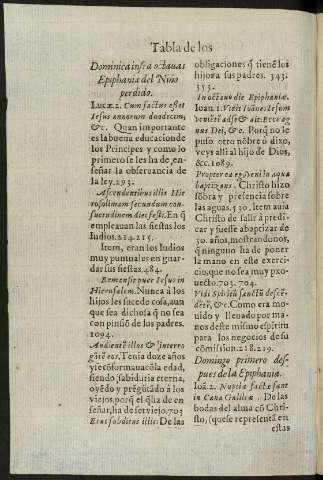 Tabla de los
Dominica infra octauas
Epiphaniæ del Niño
perdido.
Lucæ 2. Cum factus esset
Iesus annorum duodecim,
&c. Quan importante
es la buena educacion de
los Principes y como lo
primero se les ha de en-
señar la obseruancia de
la ley. 293.
Ascendentibus illis Hie
rosolimam secundum con-
suetudinem diei festi. En q̃
empleauan las fiestas los
Iudios. 214. 215.
Item, eran los Iudios
muy puntuales en guar-
dar sus fiestas. 484.
Remansit puer Iesus in
Hierusalem. Nunca à los
hijos les sucede cosa, aun
que sea dichosa q̃ no sea
con pensiõ de los padres.
1094.
Audientẽ illos & interro
gãtẽ eos. Tenia doze años
y se cõformaua cõ la edad,
siendo sabiduria eterna,
oyẽdo y pregũtãdo à los
viejos, porq̃ el q̃ ha de en
señar, ha de ser viejo. 703
Erat subditus illis: De las
obligaciones q̃ tienẽ los
hijos a sus padres. 343.
353.
In octauo die Epiphaniæ.
Ioan. 1. Vidit Ioãnes Iesum
veniẽtẽ ad se & ait: Ecce ag
nus Dei, &c. Porq̃ no le
puso otro nõbre ò dixo,
veys alli al hijo de Dios,
&c. 1089.
Propterea ego veni in aqua
baptizans. Christo hizo
sõbra y presencia sobre
las aguas. 530. Item auia
Christo de salir à predi-
car y fuesse a baptizar de
30. años, mostrandonos,
q̃ ninguno ha de poner
la mano en este exerci-
cio, que no sea muy pro-
uecto. 703. 704.
Vidi Spiritũ sanctũ descẽ-
dẽtẽ, &c. Como era mo-
uido y lleuado por ma-
nos deste mismo espiritu
para los negocios de su
cõmission. 218. 219.
Domingo primero des-
pues de la Epiphania.
Ioã. 2. Nuptiæ factæ sunt
in Cana Galileæ. De las
bodas del alma cõ Chri-
sto, (que se representã en
estas